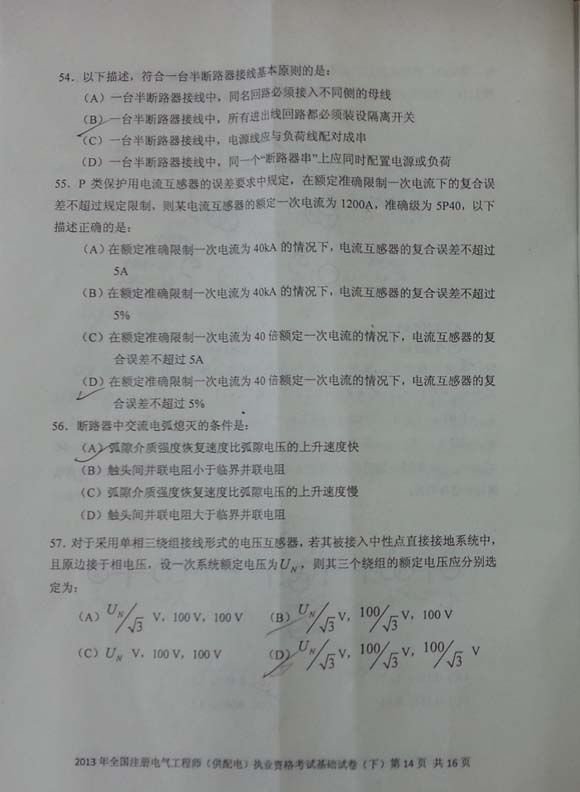 54．以下描述，符合一台半断路器接线基本原则的是：
（A）一台半断路器接线中，同名回路必须接入不同侧的母线
（B）一台半断路器接线中，所有进出线回路都必须装设隔离开关
（C）一台半断路器接线中，电源线应与负荷线配对成串
（D）一台半断路器接线中，同一个“断路器串”上应同时配置电源或负荷
55．P 类保护用电流互感器的误差要求中规定，在额定准确限制一次电流下的复合误
差不超过规定限制，则某电流互感器的额定一次电流为 1200A，准确级为 5P40，以下
描述正确的是：
（A）在额定准确限制一次电流为 40kA 的情况下，电流互感器的复合误差不超过
5A
（B）在额定准确限制一次电流为 40kA 的情况下，电流互感器的复合误差不超过
5%
（C）在额定准确限制一次电流为 40 倍额定一次电流的情况下，电流互感器的复
合误差不超过 5A
（D）在额定准确限制一次电流为 40 倍额定一次电流的情况下，电流互感器的复
合误差不超过 5%
56．断路器中交流电弧熄灭的条件是：
（A）弧隙介质强度恢复速度比弧隙电压的上升速度快
（B）触头间并联电阻小于临界并联电阻
（C）弧隙介质强度恢复速度比弧隙电压的上升速度慢
（D）触头间并联电阻大于临界并联电阻
57．对于采用单相三绕组接线形式的电压互感器，若其被接入中性点直接接地系统中，
且原边接于相电压，设一次系统额定电压为 U_N，则其三个绕组的额定电压应分别选
定为：
（A）U_N/√3 V，100 V，100 V （B）U_N/√3 V，100/√3 V，100 V
（C）U_N V，100 V，100 V （D）U_N/√3 V，100/√3 V，100/√3 V
2013 年全国注册电气工程师（供配电）执业资格考试基础试卷（下）第 14 页 共 16 页